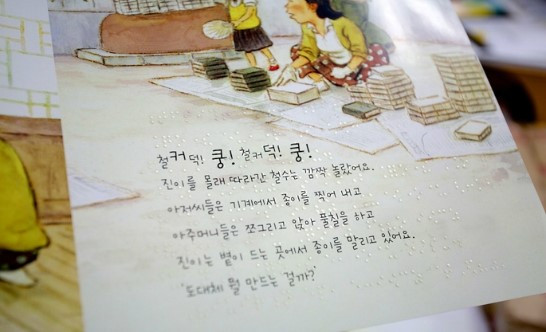 철커덕! 쿵! 철커덕! 쿵!
진이를 몰래 따라간 철수는 깜짝 놀랐어요.
아저씨들은 기계에서 종이를 찍어 내고
아주머니들은 쪼그리고 앉아 풀칠을 하고
진이는 볕이 드는 곳에서 종이를 말리고 있어요.
'도대체 뭘 만드는 걸까?'